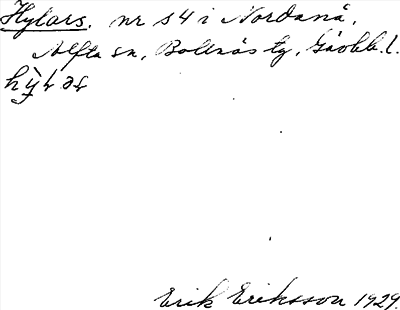 Hylars. nr 54 i Nordanå,
Alfta sn, Bollnäs tg, Gävleb. l.
Erik Eriksson 1929.